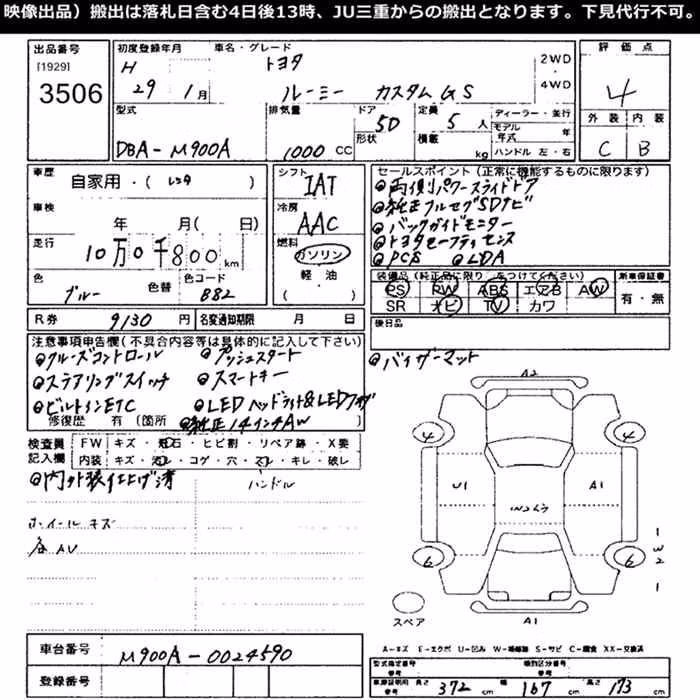 映像出品）搬出は落札日含む4日後13時、JU三重からの搬出となります。下見代行不可。
出品番号 [1929] 3506
初度登録年月 H 29 1月
車名・グレード トヨタ ルーミー カスタムGS
2WD・4WD
評価点 4
外装 内装
C B
型式 DBA-M900A
排気量 1000 CC
ドア 形状 5D
定員 5人
積載 kg
ディーラー・並行
モデル年式 年
ハンドル 左・右
車歴 自家用・(レンタ)
シフト IAT
セールスポイント(正常に機能するものに限ります)
両側パワースライドドア
純正フルセグSDナビ
バックガイドモニター
トヨタセーフティセンス
PCS LDA
車検 年 月( 日)
冷房 AAC
走行 10万0千800km
燃料 ガソリン
軽・油
( )
色 ブルー 色替
色コード B82
装備品(純正品に限り をつけてください)
新車保証書
PS PW ABS エアB AW
SR ナビ TV カワ
有・無
R券 9130円
名変通知期限 月 日
後日品
バイザーマット
注意事項申告欄(不具合内容等は具体的に記入して下さい)
クルーズコントロール プッシュスタート
ステアリングスイッチ スマートキー
ビルトインETC LEDヘッドライト&LEDフォグ
修復歴 有 (箇所 純正14インチAW )
検査員記入欄
FW キズ・飛石・ヒビ割・リペア跡・X要
内装 キズ・汚レ・コゲ・穴・スレ・キレ・破レ
内外装仕上げ済 ハンドル
ホイールキズ
各AU
A2
4 4
U1 A1
6 6
1
W2
1
スペア
A1
A-キズ E-エクボ U-凹み W-補修跡 S-サビ C-腐食 XX-交換済
車台番号 M900A-0024590
登録番号
型式指定番号 参考
類別区分番号 参考
車庫証明用 参考 長さ 372 cm 幅 167 cm 高さ 173 cm